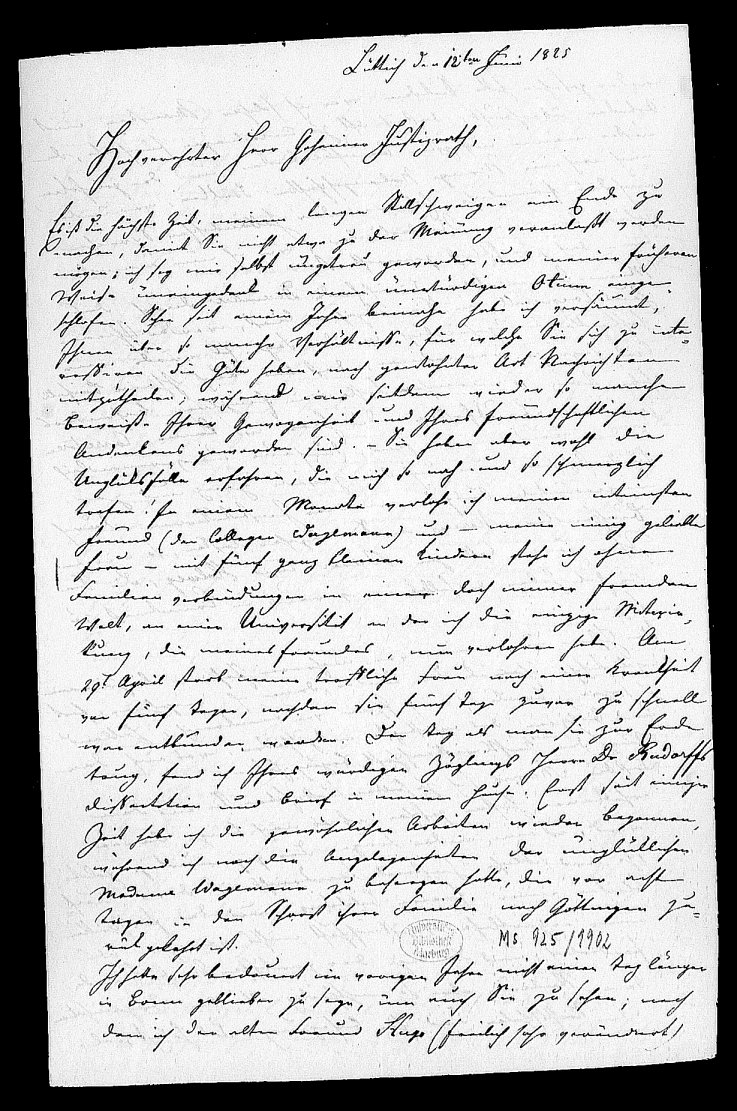 Lüttich den 12ten Juni 1825
Hochverehrter Herr Geheimer Justizrath,
Es ist die höchste Zeit, meinem langen Stillschweigen ein Ende zu
machen, damit Sie nicht etwa zu der Meinung veranlaßt werden
mögen, ich sey mir selbst ungetreu geworden, und meiner früheren
Weise uneingedenk in einem unwürdigen Otium einge-
schlafen. Schon seit einem Jahre beinahe habe ich versäumt,
Ihnen über so manche Verhältnisse, für welche Sie sich zu inte-
ressiren die Güte haben, nach gewohnter Art Nachrichten
mitzutheilen, während mir seitdem wieder so manche
Beweise Ihrer Gewogenheit und Ihres freundschaftlichen
Andenkens geworden sind. – Sie haben aber wohl die
Unglücksfälle erfahren, die mich so nah und so schmerzlich
trafen! In einem Monate verlohr ich meinen intimsten
Freund (den Collegen Wagemann) und – meine innig geliebte
Frau – mit fünf ganz kleinen Kindern stehe ich ohne
Familienverbindungen in einer doch immer fremden
Welt, an einer Universität an der ich die einzige Mitwir-
kung, die meines Freundes, nun verlohren habe. Am
29t April starb meine treffliche Frau nach einer Krankheit
von fünf Tagen, nachdem sie fünf Tage zuvor zu schnell
war entbunden worden. Den Tag als man sie zur Erde
trug, fand ich Ihres würdigen Zöglings Herrn Dr Rudorffs
Dissertation und Brief in meinem Hause. Erst seit einiger
Zeit habe ich die gewöhnlichen Arbeiten wieder begonnen,
während ich noch die Angelegenheiten der unglücklichen
Madame Wagemann zu besorgen hatte, die vor acht
Tagen in den Schooß ihrer Familie nach Göttingen zu-
rückgekehrt ist.
Universitäts
Bibliothek
Marburg
Ms. 925/1902
Ich habe sehr bedauert im vorigen Jahre nicht einen Tag länger
in Bonn geblieben zu seyn, um auch Sie zu sehen; nach
dem ich den alten Freund (freilich sehr verändert)